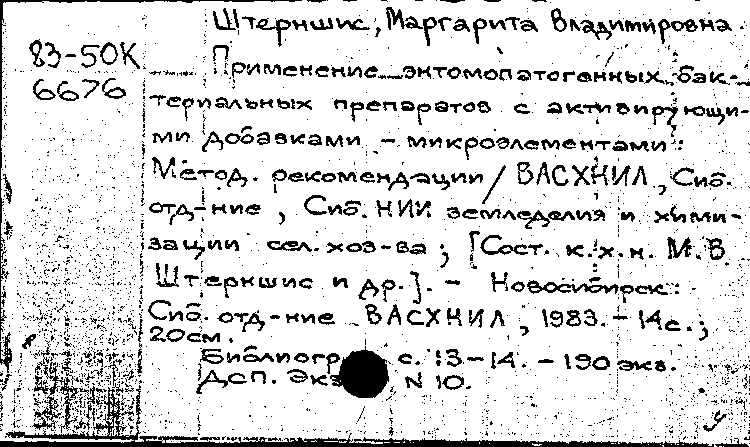 Штерншис, Маргарита Владимировна
83-50К
6676
Применение энтомопатогенных бак-
териальных препаратов с активирующи-
ми добавками - микроэлементами:
Метод. рекомендации / ВАСХНИЛ, Сиб.
отд-ние, Сиб. НИИ земледелия и хими-
зации сел. хоз-ва; [Сост. к.х.н. М.В.
Штерншис и др.]. - Новосибирск:
Сиб. отд-ние ВАСХНИЛ, 1983. - 14 с.;
20 см.
Библиогр с. 13-14. - 190 экз.
ДСП. Экз N 10.